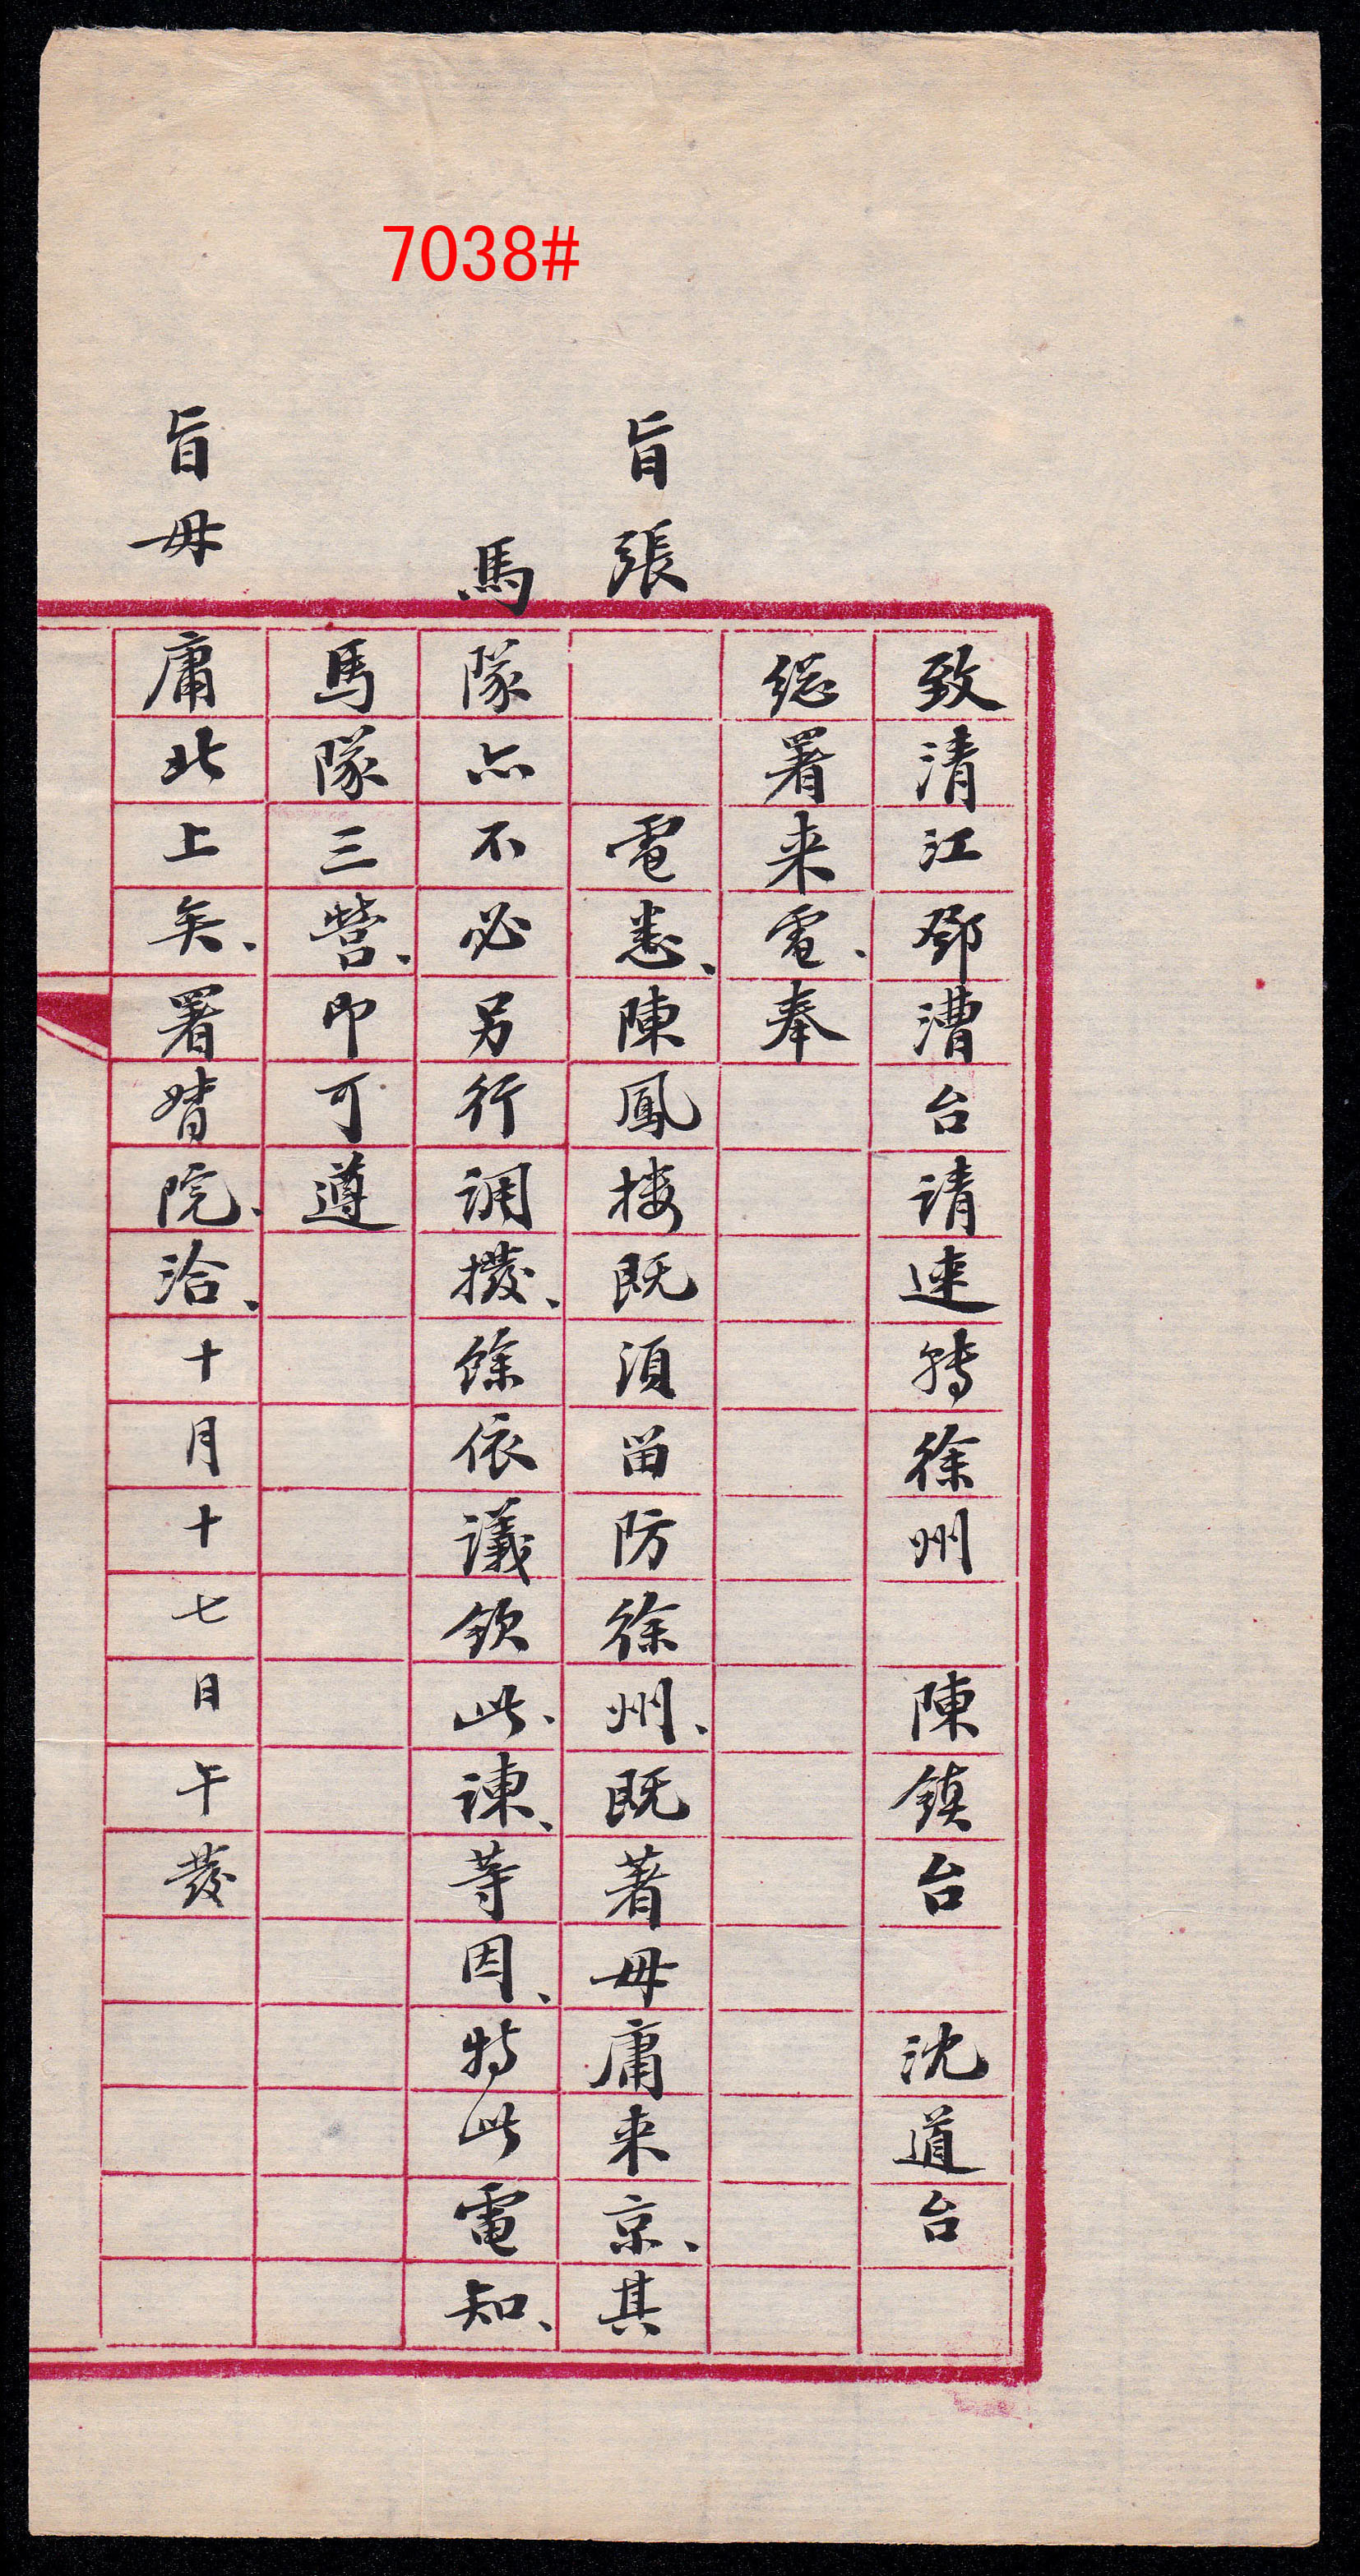 7038#
致清江鄧漕台请速轉徐州 陳鎮台 沈道台
総署来電、奉
旨張 電悉、陳鳳楼既須留防徐州、既著毋庸来京、其
馬隊亦不必另行调撥、餘依議欽此、諫、等因、特此電知、
馬隊三營、即可遵
旨毋庸北上矣、署督院洽、十月十七日午發